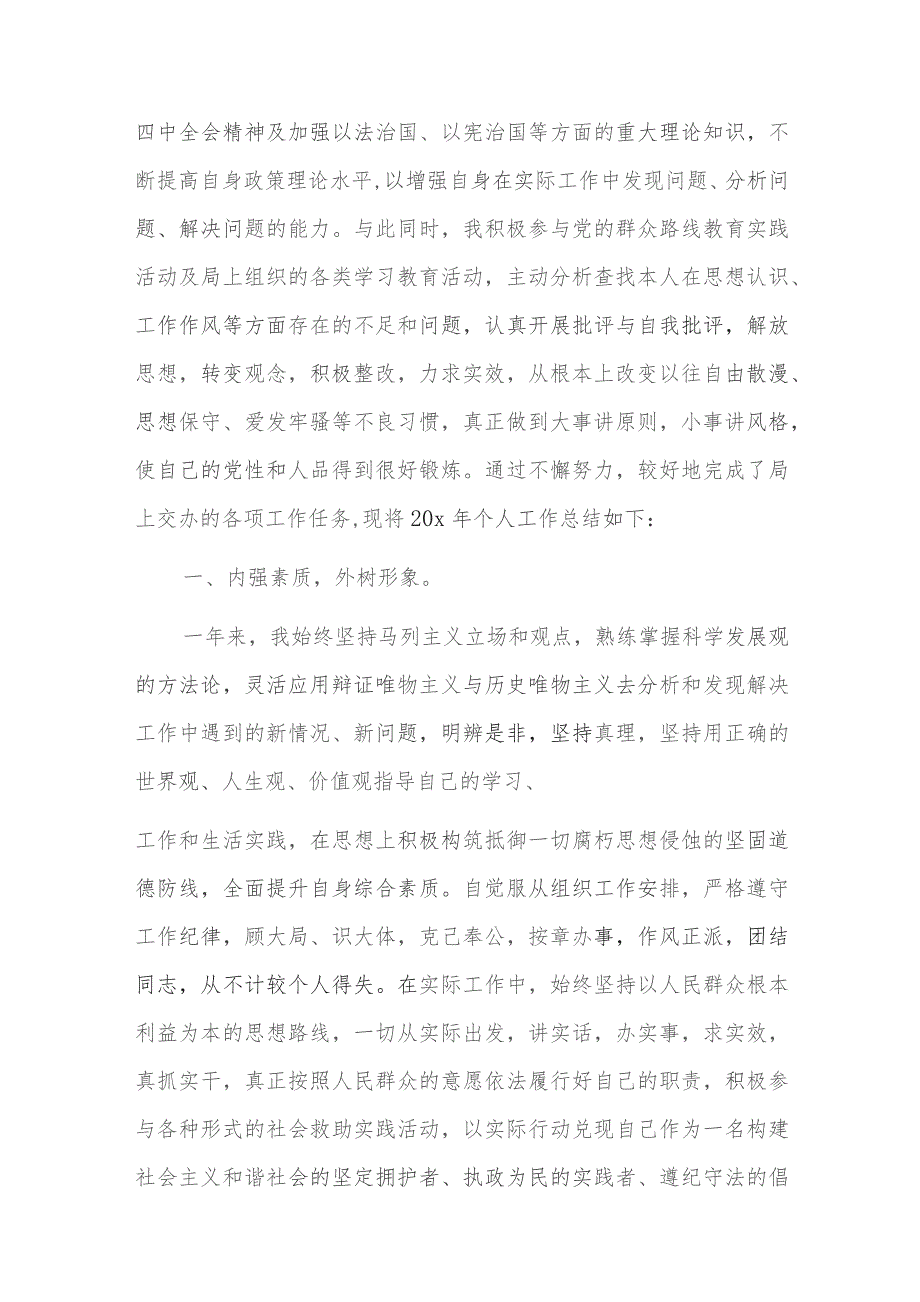 四中全会精神及加强以法治国、以宪治国等方面的重大理论知识，不
断提高自身政策理论水平,以增强自身在实际工作中发现问题、分析问
题、解决问题的能力。与此同时，我积极参与党的群众路线教育实践
活动及局上组织的各类学习教育活动，主动分析查找本人在思想认识、
工作作风等方面存在的不足和问题，认真开展批评与自我批评，解放
思想，转变观念，积极整改，力求实效，从根本上改变以往自由散漫、
思想保守、爱发牢骚等不良习惯，真正做到大事讲原则，小事讲风格，
使自己的党性和人品得到很好锻炼。通过不懈努力，较好地完成了局
上交办的各项工作任务,现将 20x 年个人工作总结如下：
一、内强素质，外树形象。
一年来，我始终坚持马列主义立场和观点，熟练掌握科学发展观
的方法论，灵活应用辩证唯物主义与历史唯物主义去分析和发现解决
工作中遇到的新情况、新问题，明辨是非，坚持真理，坚持用正确的
世界观、人生观、价值观指导自己的学习、
工作和生活实践，在思想上积极构筑抵御一切腐朽思想侵蚀的坚固道
德防线，全面提升自身综合素质。自觉服从组织工作安排，严格遵守
工作纪律，顾大局、识大体，克己奉公，按章办事，作风正派，团结
同志，从不计较个人得失。在实际工作中，始终坚持以人民群众根本
利益为本的思想路线，一切从实际出发，讲实话，办实事，求实效，
真抓实干，真正按照人民群众的意愿依法履行好自己的职责，积极参
与各种形式的社会救助实践活动，以实际行动兑现自己作为一名构建
社会主义和谐社会的坚定拥护者、执政为民的实践者、遵纪守法的倡